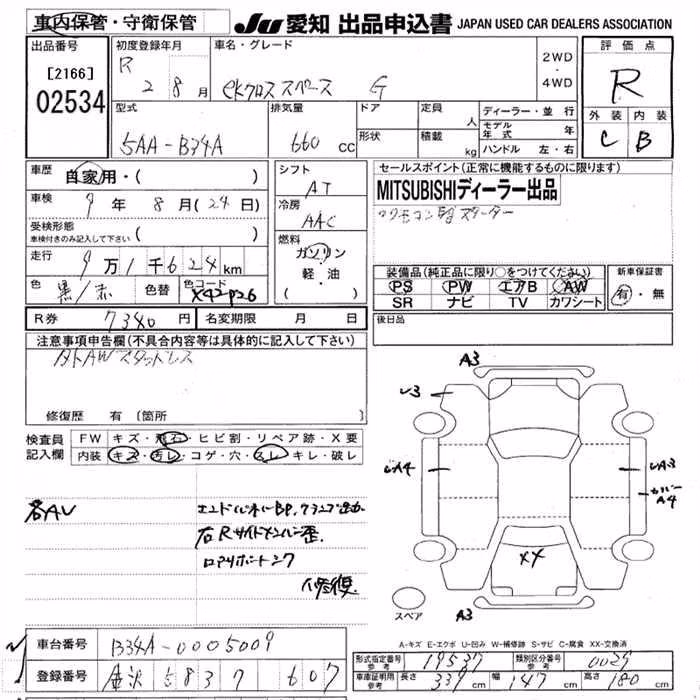 車内保管・守衛保管
JU 愛知 出品申込書 JAPAN USED CAR DEALERS ASSOCIATION
出品番号
[2166]
02534
初度登録年月
R 2 8月
車名・グレード
eKクロス スペース G
2WD
・
4WD
評価点
R
外装 内装
C B
型式
5AA-B34A
排気量
660 cc
ドア
形状
定員 人
積載 kg
ディーラー・並行
モデル年式 年
ハンドル 左・右
車歴 自家用・( )
車検 9年 8月(24日)
受検形態
車検付きのみ記入して下さい ( )
走行 9万1千624km
色 黒/赤 色替 色コード X42 P26
シフト
AT
冷房
AAC
燃料
ガソリン
・
軽・油
( )
セールスポイント(正常に機能するものに限ります)
MITSUBISHIディーラー出品
装備品(純正品に限り○をつけてください)
PS PW エアB AW
SR ナビ TV カワシート
新車保証書
有・無
R券 7340円 名変期限 月 日
後日品
注意事項申告欄(不具合内容等は具体的に記入して下さい)
社外AWスタッドレス
修復歴 有 〔箇所
検査員記入欄
FW キズ・飛石・ヒビ割・リペア跡・X要
内装 キズ・汚レ・コゲ・穴・スレ・キレ・破レ
各AU
右Rサイドメンバー歪.
ロアサポートシワ
修復
A3
A4
A3
A4
XX
A3
スペア
A-キズ E-エクボ U-凹み W-補修跡 S-サビ C-腐食 XX-交換済
車台番号 B34A-0005009
登録番号 金沢 583 7 607
形式指定番号 参考 19537 類別区分番号 参考 0029
車庫証明用 参考 長さ 339 cm 幅 147 cm 高さ 180 cm